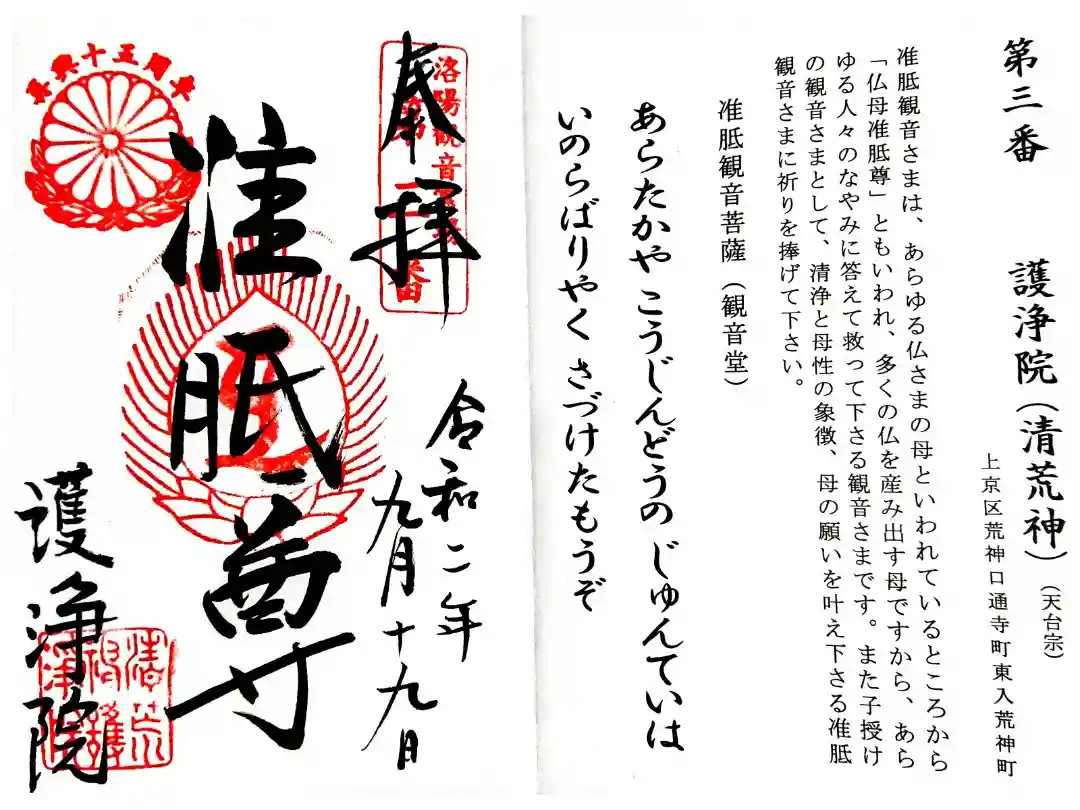 第三番　護浄院（清荒神）（天台宗）
上京区荒神口通寺町東入荒神町
准胝観音さまは、あらゆる仏さまの母といわれているところから
「仏母准胝尊」ともいわれ、多くの仏を産み出す母ですから、あら
ゆる人々のなやみに答えて救って下さる観音さまです。また子授け
の観音さまとして、清浄と母性の象徴、母の願いを叶え下さる准胝
観音さまに祈りを捧げて下さい。
准胝観音菩薩（観音堂）
あらたかや こうじんどうの じゅんていは
いのらばりやく さづけたもうぞ
洛陽観音霊場
第三番
奉拝
令和二年
九月十九日
准胝尊
護浄院
十五周年
清荒